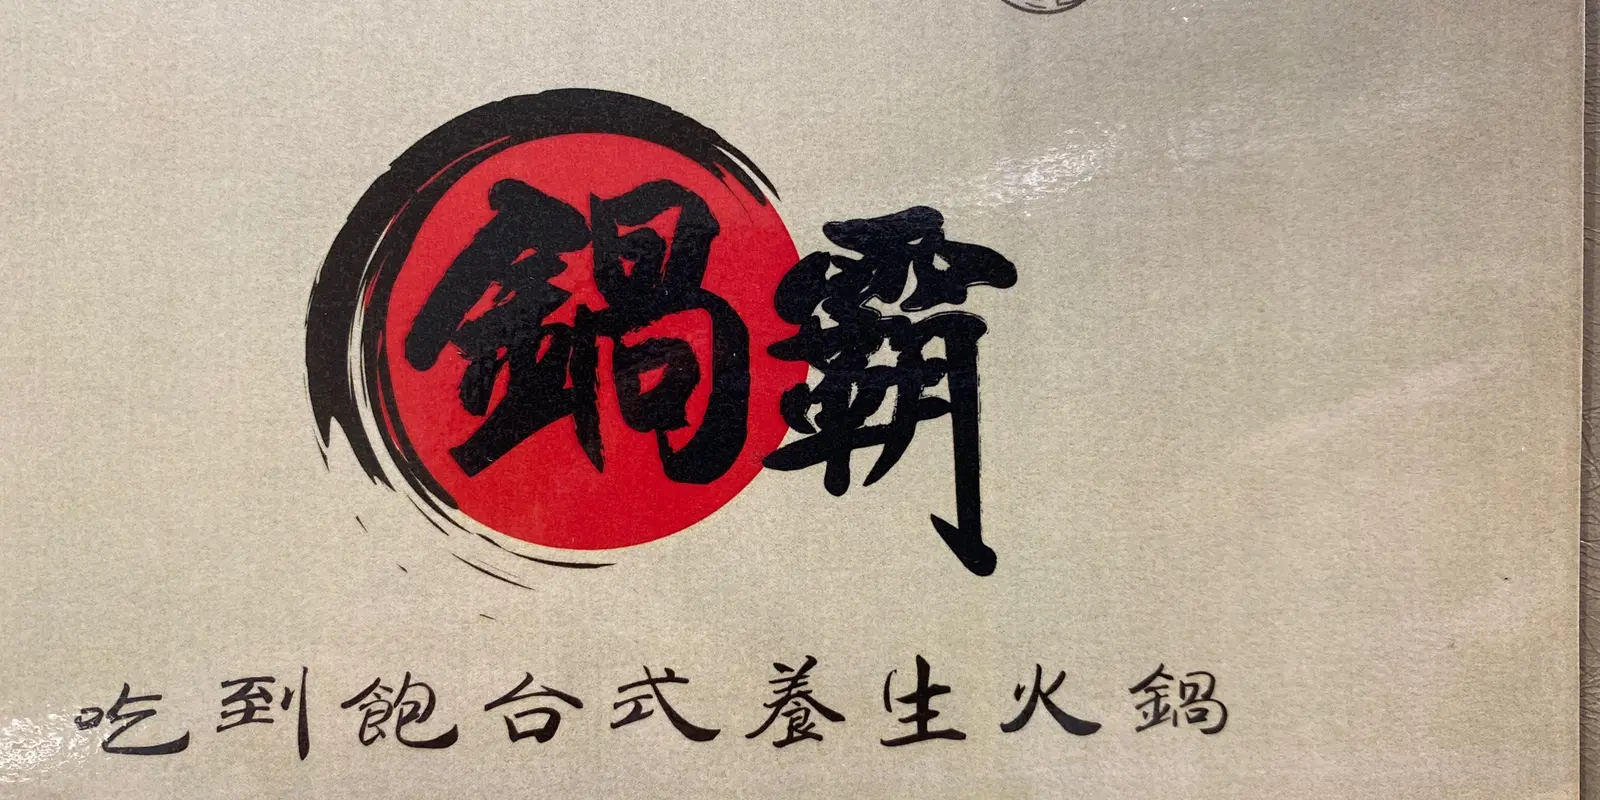 鍋霸
吃到飽台式養生火鍋